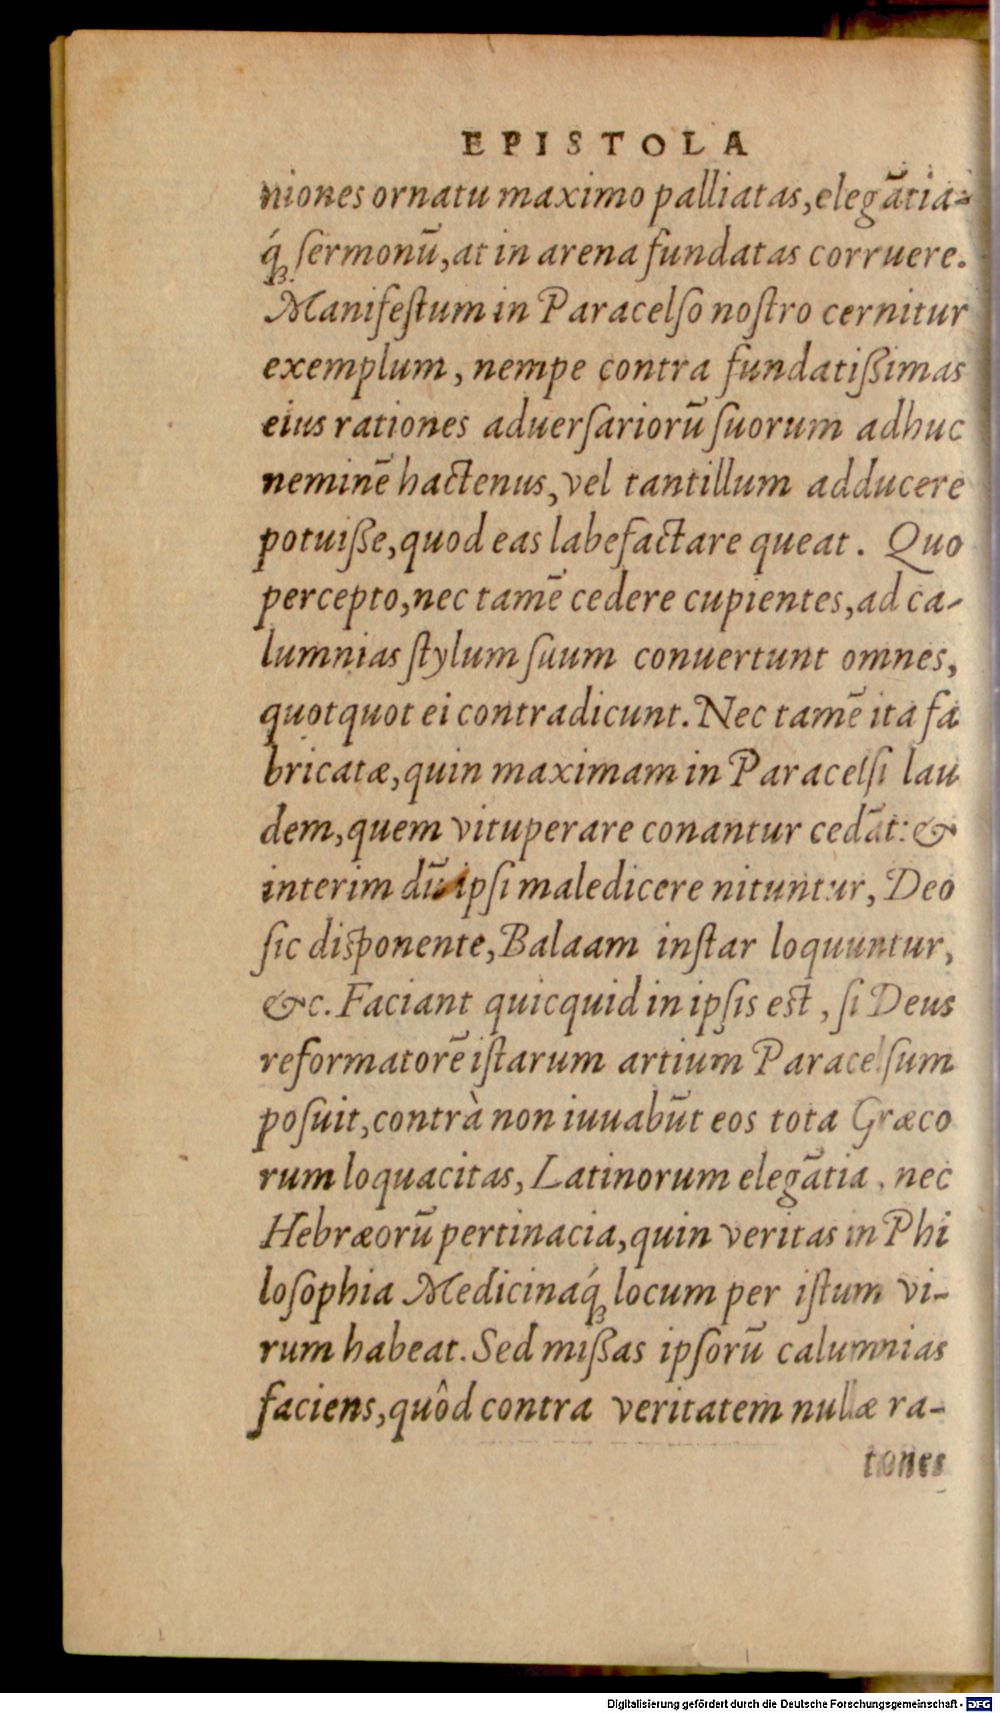 EPISTOLA
niones ornatu maximo palliatas, elegãtia-
q́ꝫ ſermonũ, at in arena fundatas corruere.
Manifeſtum in Paracelſo noſtro cernitur
exemplum, nempe contra fundatiſsimas
eius rationes aduerſariorũ ſuorum adhuc
neminẽ hactenus, vel tantillum adducere
potuiſse, quod eas labefactare queat. Quo
percepto, nec tamẽ cedere cupientes, ad ca-
lumnias ſtylum ſuum conuertunt omnes,
quotquot ei contradicunt. Nec tamẽ ita fa
bricatæ, quin maximam in Paracelſi lau
dem, quem vituperare conantur cedãt: &
interim dũ ipſi maledicere nituntur, Deo
ſic diſponente, Balaam inſtar loquuntur,
&c. Faciant quicquid in ipſis eſt, ſi Deus
reformatorẽ iſtarum artium Paracelſum
poſuit, contrà non iuuabũt eos tota Græco
rum loquacitas, Latinorum elegãtia, nec
Hebræorũ pertinacia, quin veritas in Phi
loſophia Medicinaq́ꝫ locum per iſtum vi-
rum habeat. Sed miſsas ipſorũ calumnias
faciens, quôd contra veritatem nullæ ra-
tones
Digitalisierung gefördert durch die Deutsche Forschungsgemeinschaft - DFG